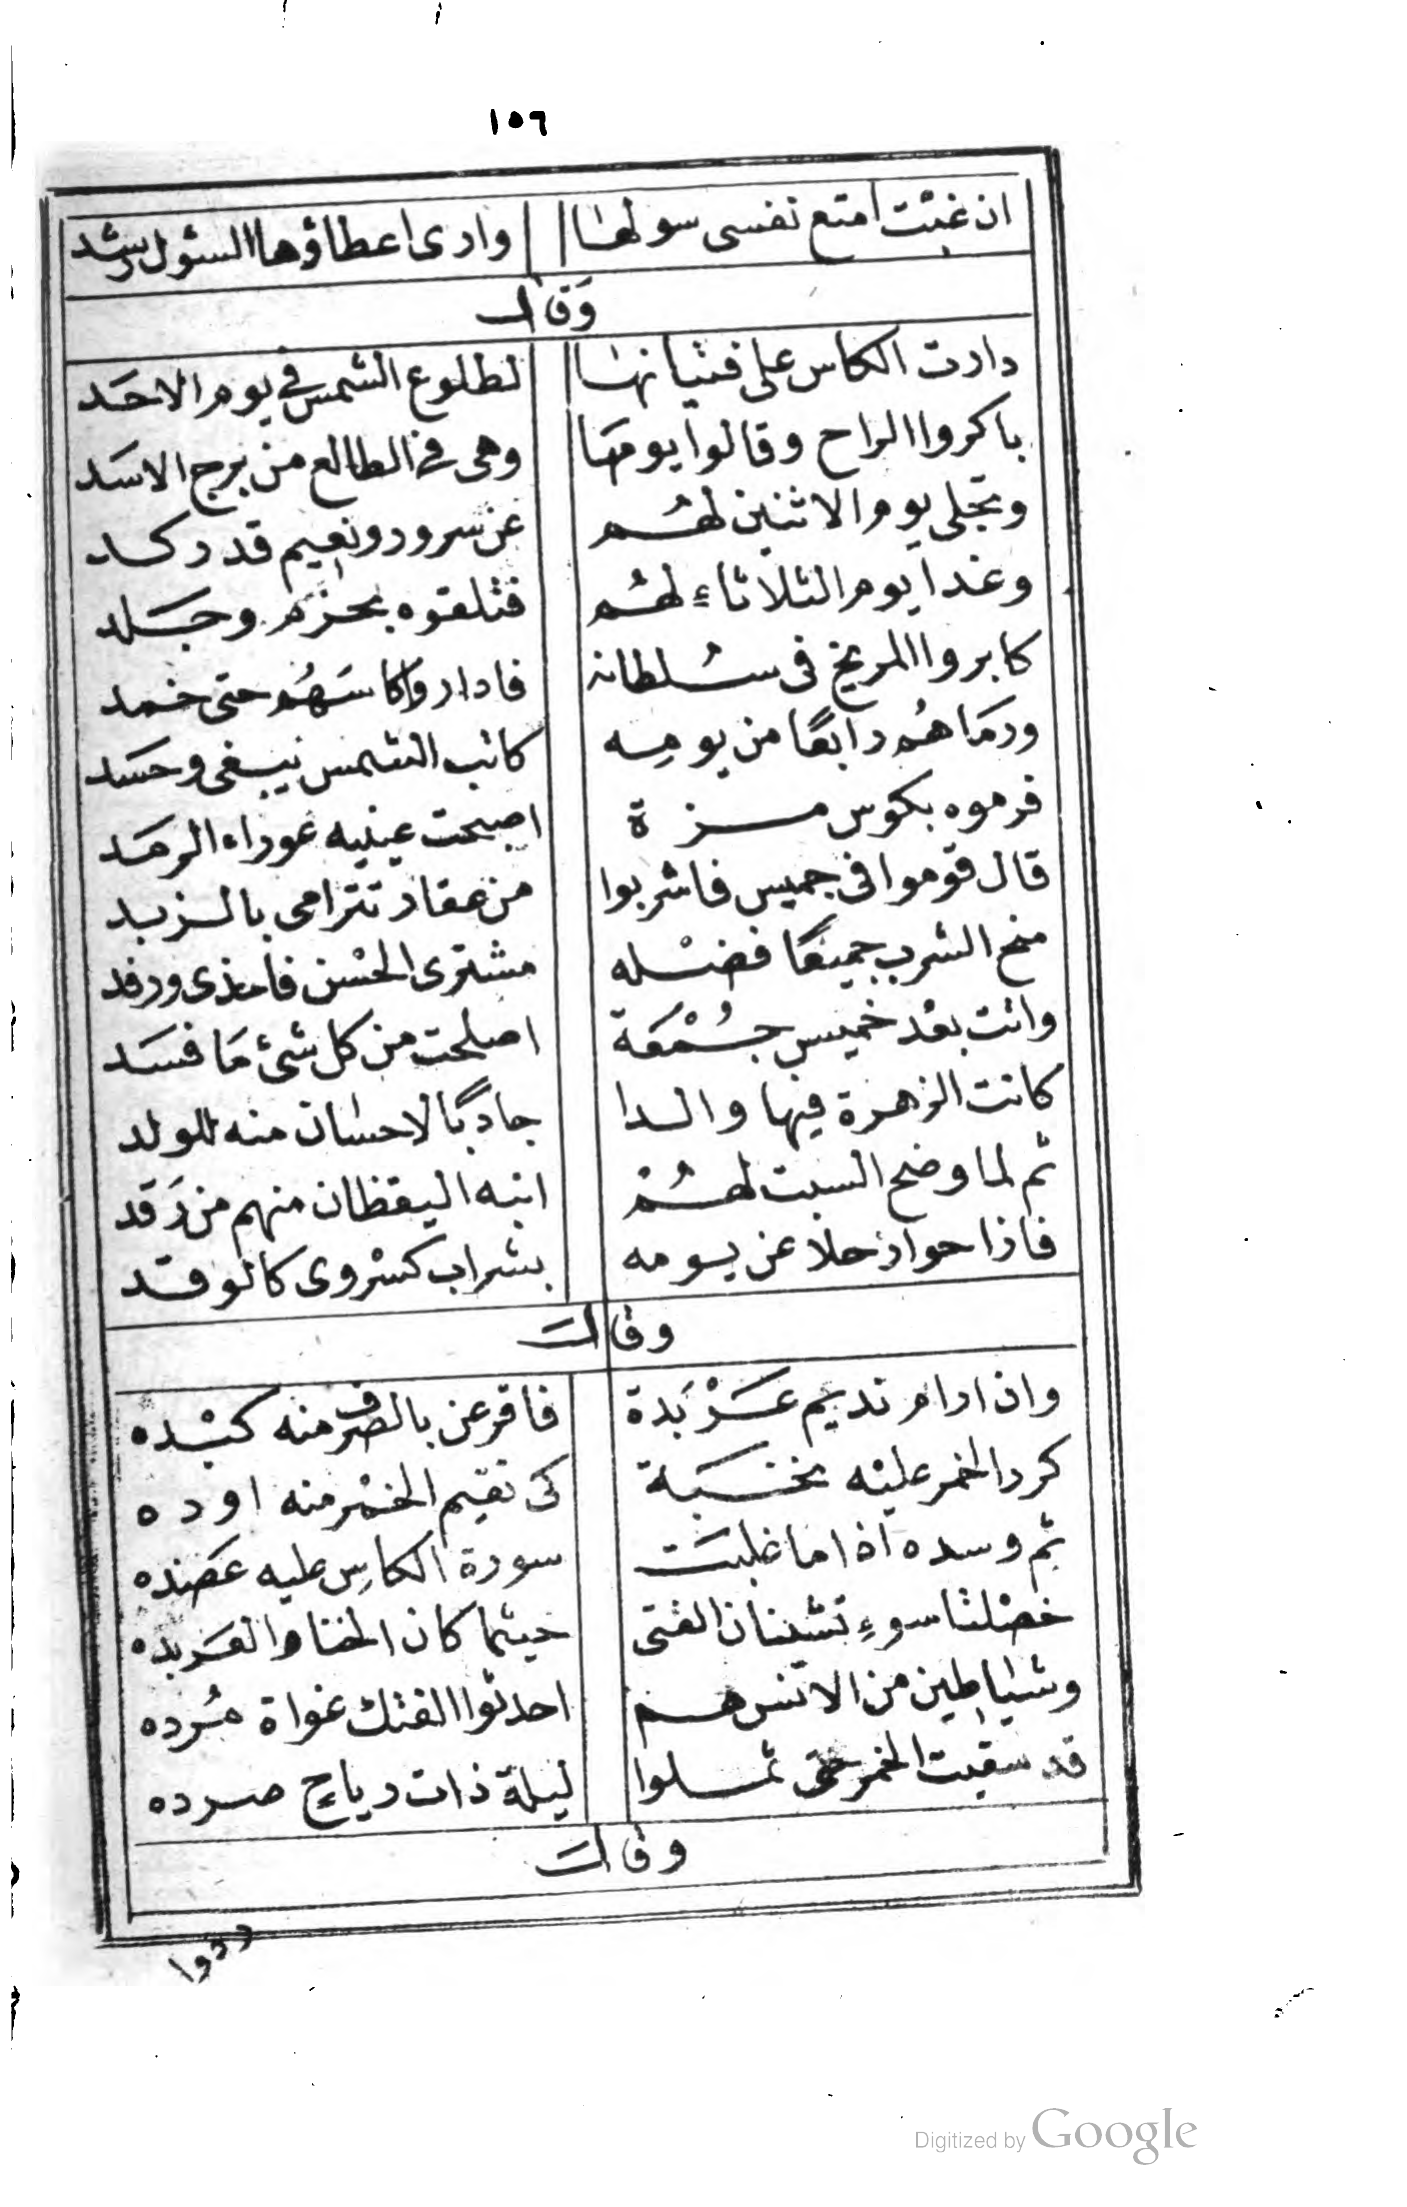 ١٥٦
ان غبت امتع نفسى سولها وارى اعطاؤها السئول رشد
وَقال
دارت الكاس على فتيانها لطلوع الشمس فى يوم الاحَد
باكروا الراح وقالوا يومهَا وهى فى الطالع من برج الاسَد
وتجلى يوم الاثنين لهُم عن سرور ونعيم قد ركد
وغدا يوم الثلاثاء لهُم فتلقوه بحزم وجَلد
كابروا المريخ فى سُلطانه فاداروا كاسَهُم حتى خمد
ورمَاهُم رابعًا من يومِه كاتب الشمس ببغى وحسَد
فرموه بكوس مزة اصبحت عينيه عوراء الرمَد
قال قوموا فى خميس فاشربوا من عقار تترامى بالزبد
منح الشرب جميعًا فضْله مشترى الحسْن فاحذى ورفد
واتت بعْد خميس جُمْعَة اصلحت من كل شئ مَا فسَد
كانت الزهرة فيها والدا جاد بالاحسَان منه للولد
ثم لما وضح السبت لهُمْ انبه اليقظان منهم من رَقد
فاذا حواذ حلا عن يومه بشراب كسْروى كالوقد
وقالَ
وان ارام نديم عَرْبَدة فاقرعن بالصرف منه كبْده
كرر الخمر عليْه بخسَبة كى تقيم الخمْر منه اوده
ثم وسده اذا ما غلبَت سورة الكاسِ عليه عَضده
خصْلتا سوءٍ تشينان الفتى حيثما كان الخنا والعَربده
وشيَاطين من الانس هم احدثوا الفتك غواة مُرده
قد سقيت الخمر حتى ثملوا ليلة ذات رياح صرده
وقالَ
ردوا
Digitized by Google